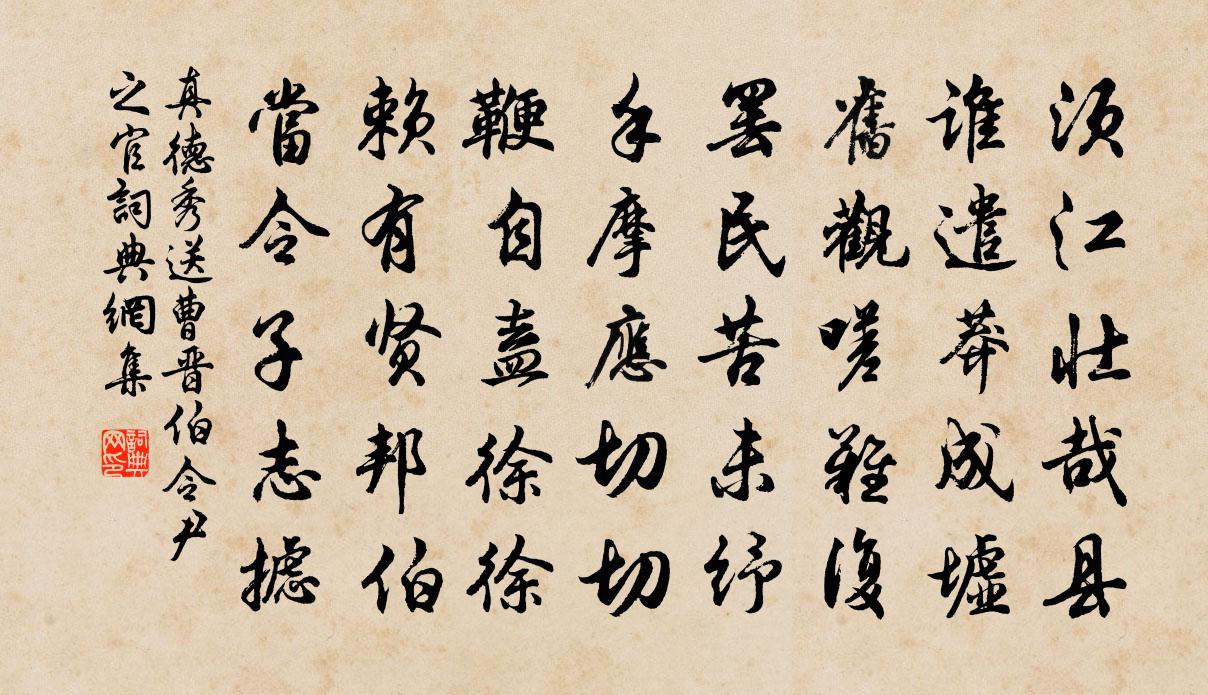 须江壮哉县
谁遣莽成墟
舊觀嗟難復
罢民苦未纾
手摩應切切
鞭自盍徐徐
赖有贤邦伯
當令子志摅
真德秀送曹晋伯令尹
之官詞典網集
詞典
网印